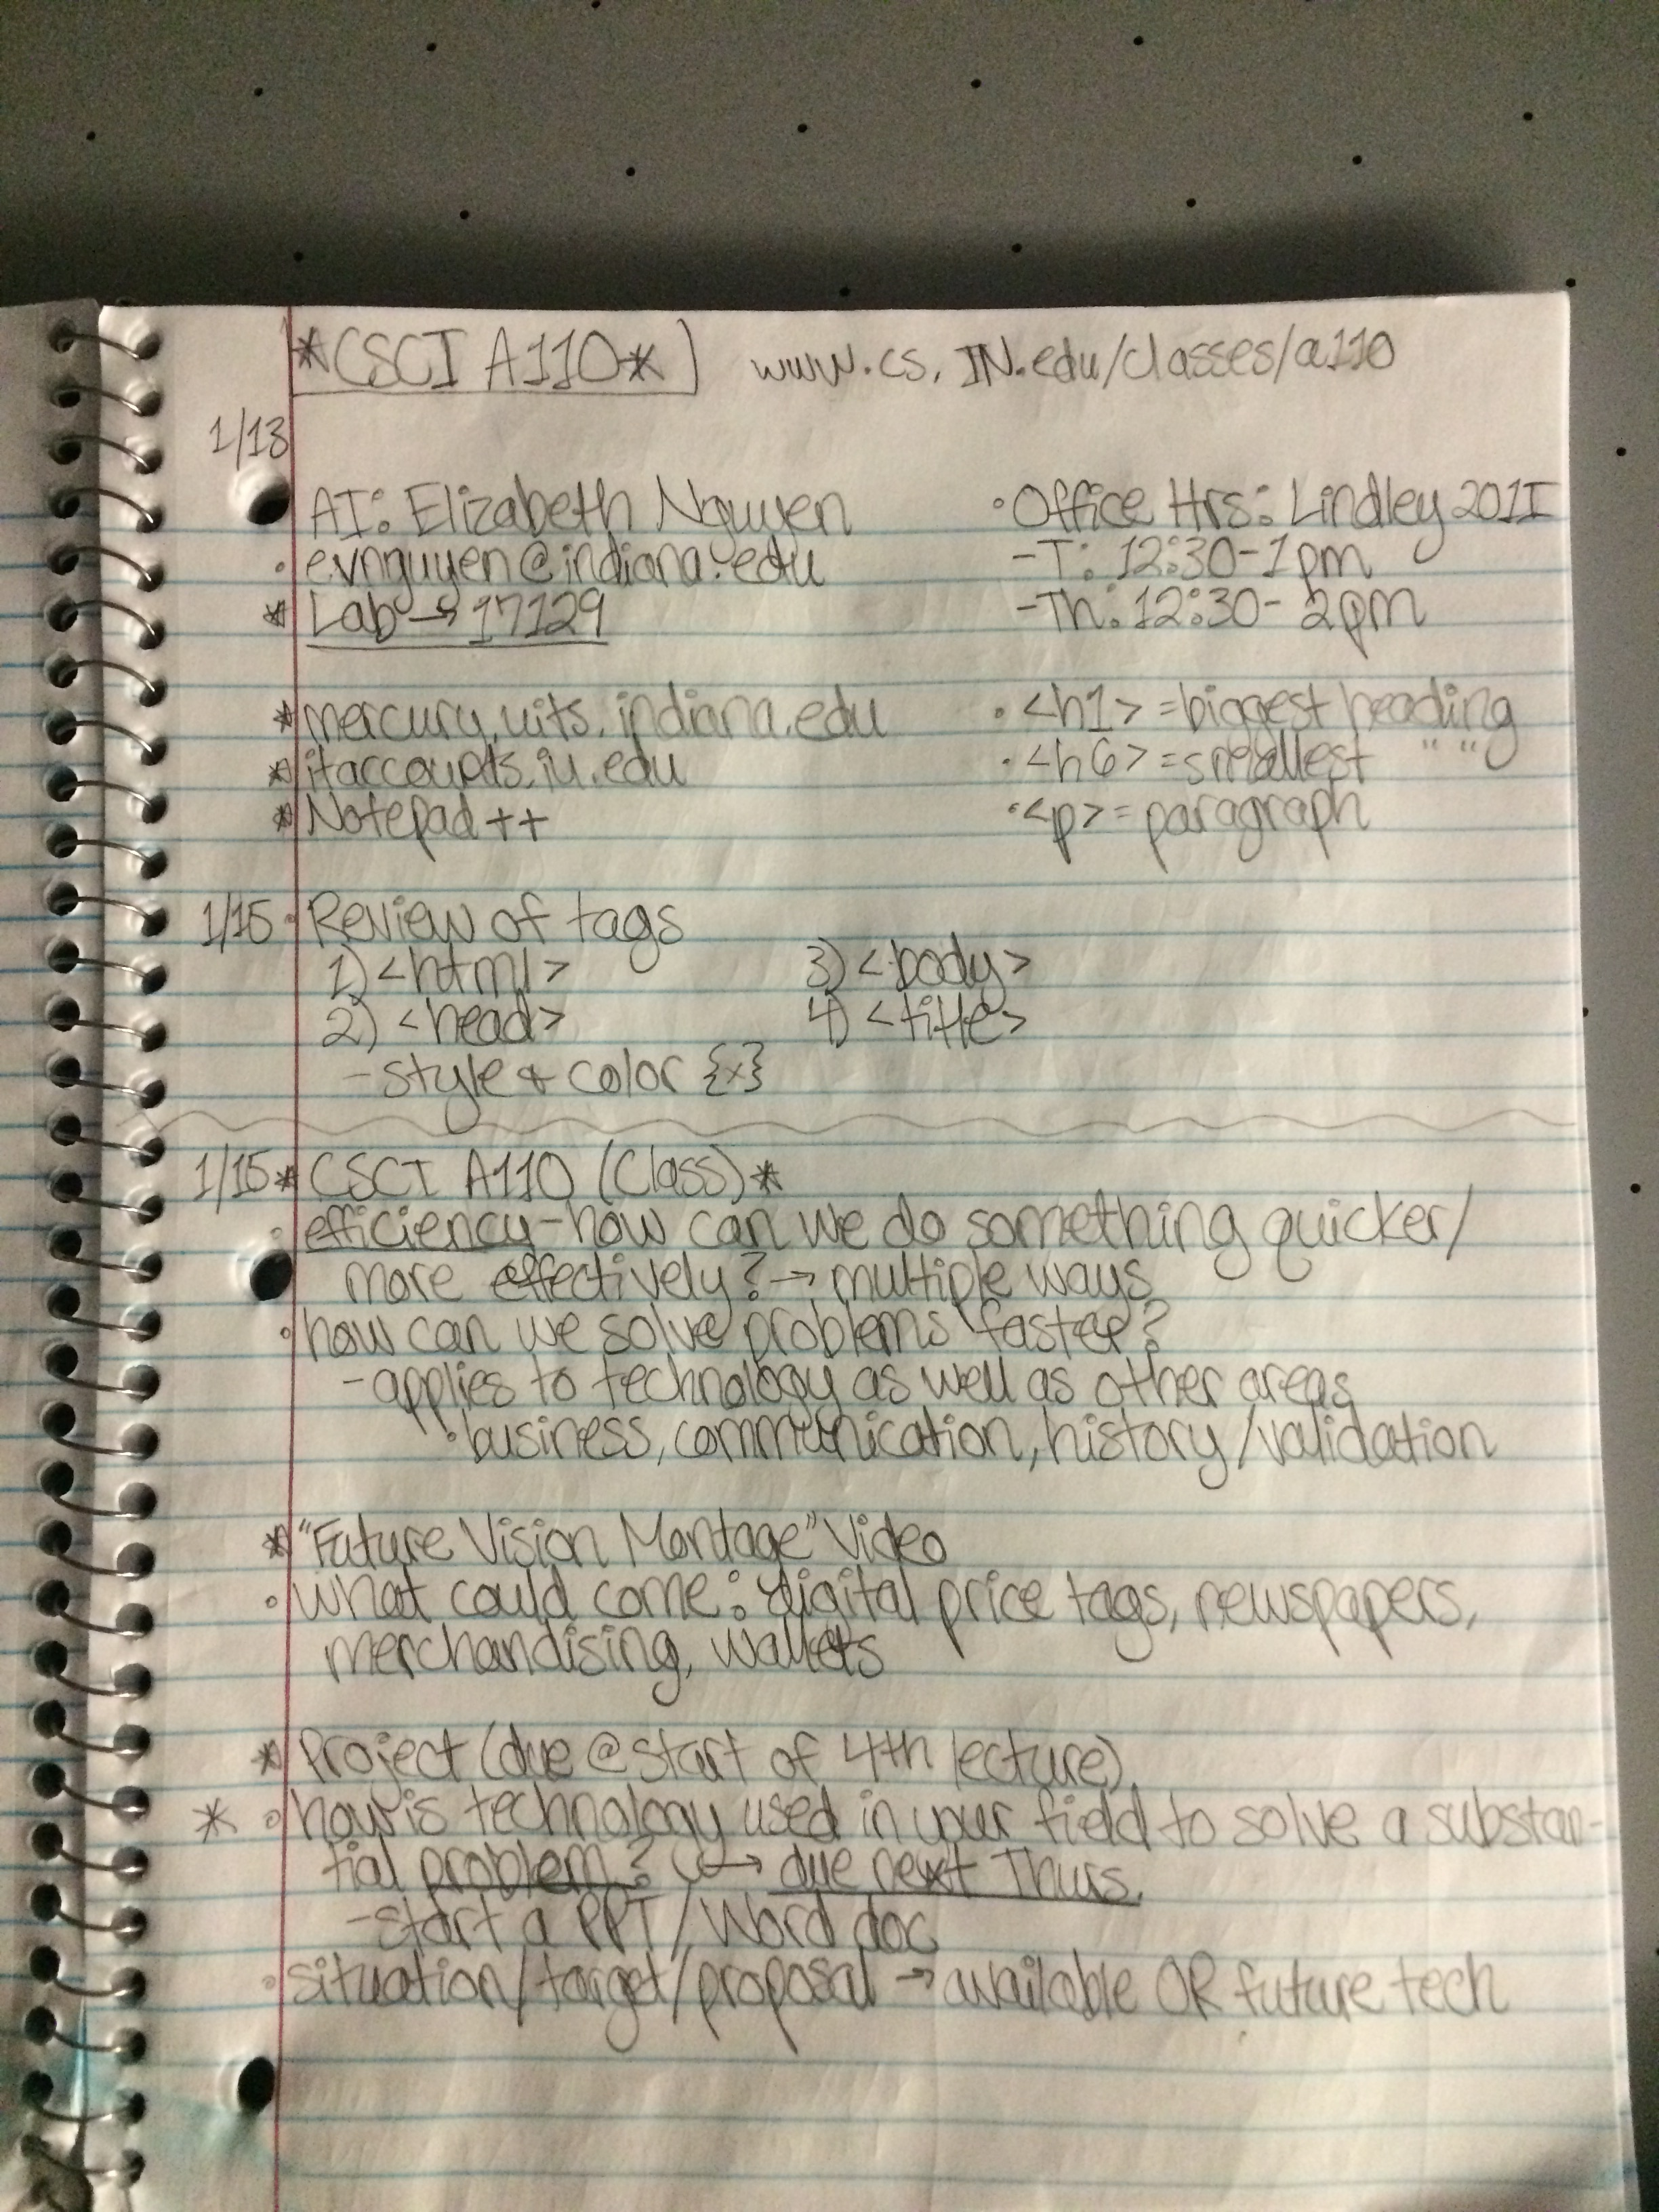 *CSCI A110* www.cs.IN.edu/classes/a110
1/13
AI: Elizabeth Nguyen
• evnguyen@indiana.edu
* Lab → 17129
• Office Hrs: Lindley 201I
- T: 12:30-1pm
- Th: 12:30-2pm
* mercury.uits.indiana.edu
* itaccounts.iu.edu
* Notepad ++
• <h1> = biggest heading
• <h6> = smallest " "
• <p> = paragraph
1/15 • Review of tags
1) <html> 3) <body>
2) <head> 4) <title>
- style & color {x}
1/15 * CSCI A110 (Class) *
• efficiency - how can we do something quicker/
more effectively? → multiple ways
• how can we solve problems faster?
- applies to technology as well as other areas
• business, communication, history/validation
* "Future Vision Montage" Video
• what could come: digital price tags, newspapers,
merchandising, wallets
* Project (due @ start of 4th lecture)
* • how is technology used in your field to solve a substan-
tial problem? → due next Thurs.
- start a PPT/Word doc
• situation/target/proposal → available OR future tech